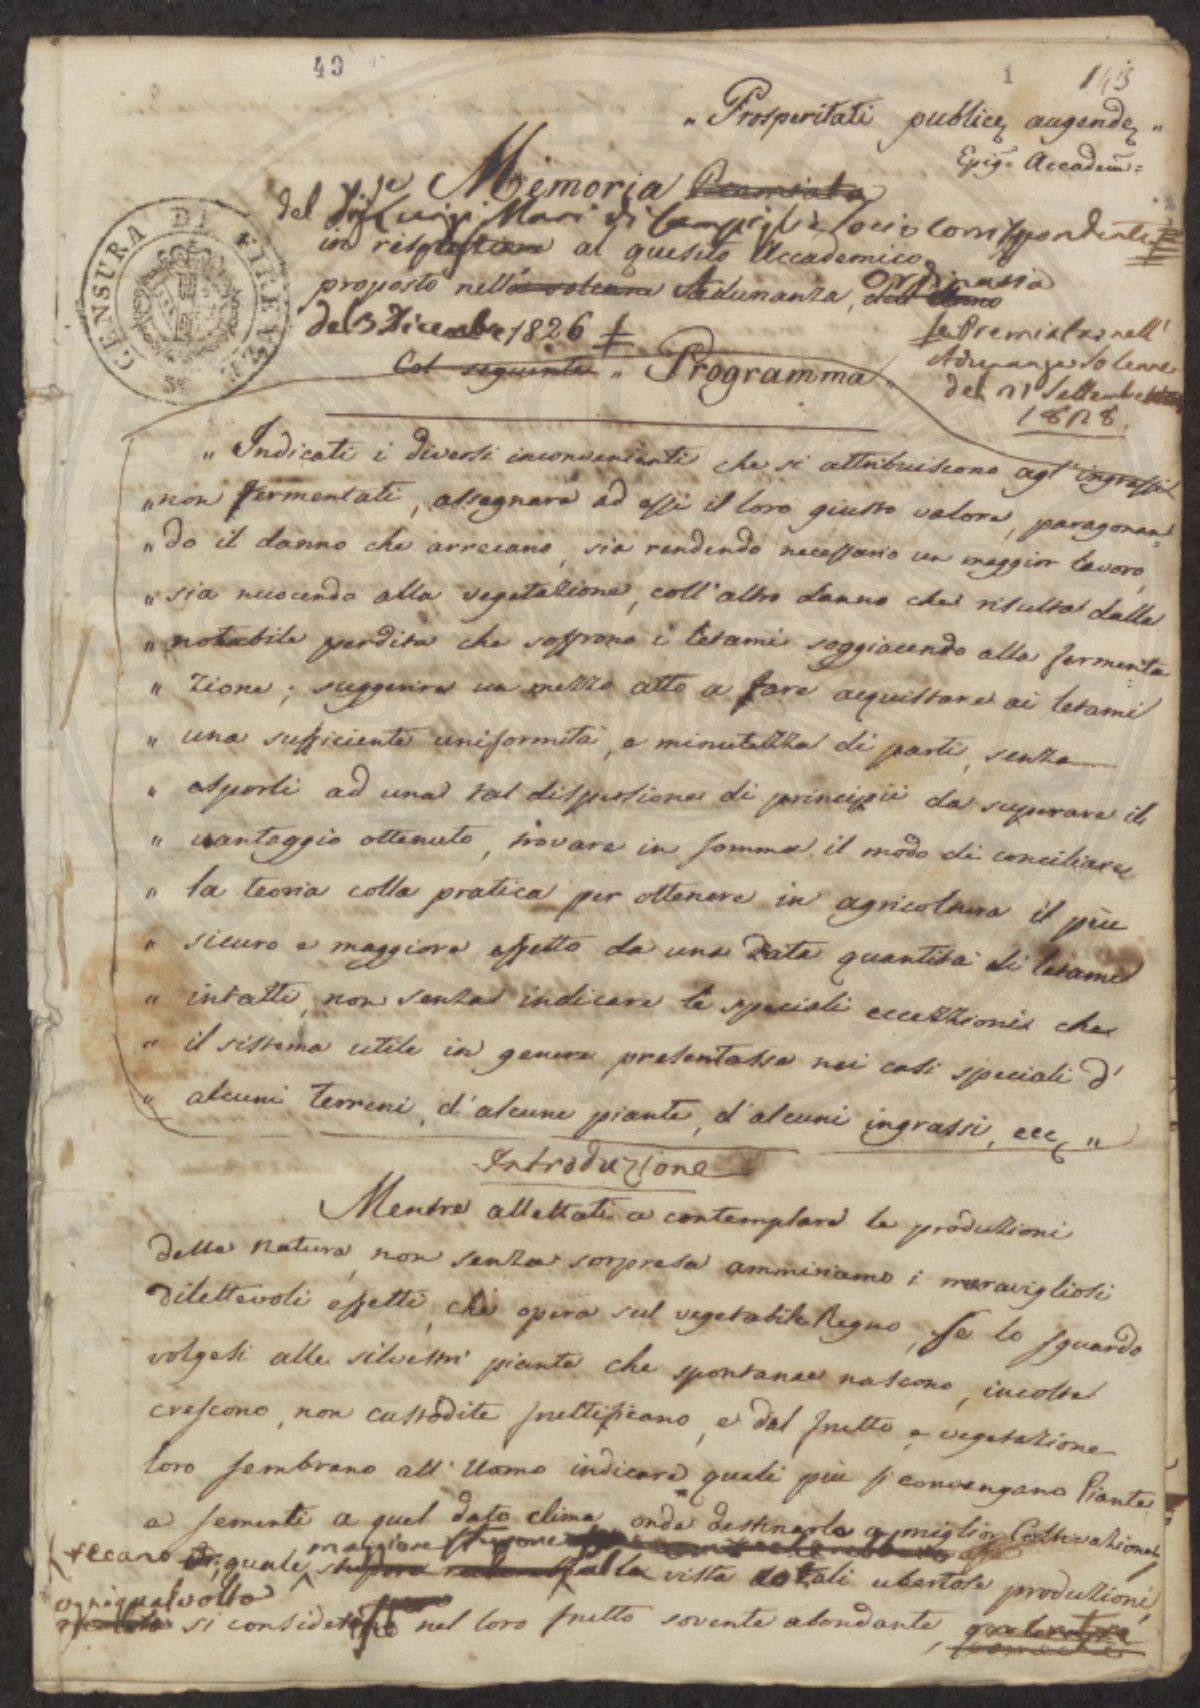 49
1
143
" Prosperitati publicę augendę "
Epig.e Accadem:=
Memoria Premiata
del Sig.re Luigi Mari di Campiglia socio corrispondente
in risposta al quesito Accademico
proposto nell' Adunanza, Ordinaria
de 3 Dicembre 1826 ‡
‡e Premiata nell'
Adunanza Solenne
del 21 Settembre
1828.
Col seguente " Programma "
CENSURA DI FIRENZE
" Indicati i diversi inconvenienti che si attribuiscono agl' ingrassi
" non fermentati, assegnare ad essi il loro giusto valore, paragonan=
" do il danno che arrecano, sia rendendo necessario un maggior lavoro,
" sia nuocendo alla vegetazione, coll' altro danno che risulta dalla
" notabile perdita che soffrono i letami soggiacendo alla fermenta=
" zione; suggerire un mezzo atto a fare acquistare ai letami
" una sufficiente uniformità, e minutezza di parti, senza
" esporli ad una tal dispersione di principii da superare il
" vantaggio ottenuto, trovare in somma il modo di conciliare
" la teoria colla pratica per ottenere in agricoltura il più
" sicuro e maggiore effetto da una data quantità di letame
" intatti, non senza indicare le speciali eccezzioni che
" il sistema utile in genere presentasse nei casi speciali d'
" alcuni terreni, d' alcune piante, d' alcuni ingrassi, ecc "
Introduzione
Mentre allettati a contemplare le produzioni
della Natura, non senza sorpresa ammiriamo i maravigliosi
dilettevoli effetti, che opera sul vegetabile Regno, se lo sguardo
volgesi alle silvestri piante che spontanee nascono, incolte
crescono, non custodite fruttificano, e dal frutto, e vegetazione
loro sembrano all' Uomo indicare quali più si convengano Piante
e sementi a quel dato clima, onde destinarle a miglior Coltivazione,
maggiore stupore
(recano quale alla vista di tali ubertose produzioni,
ogni qual volta si considerino nel loro frutto sovente abondante,